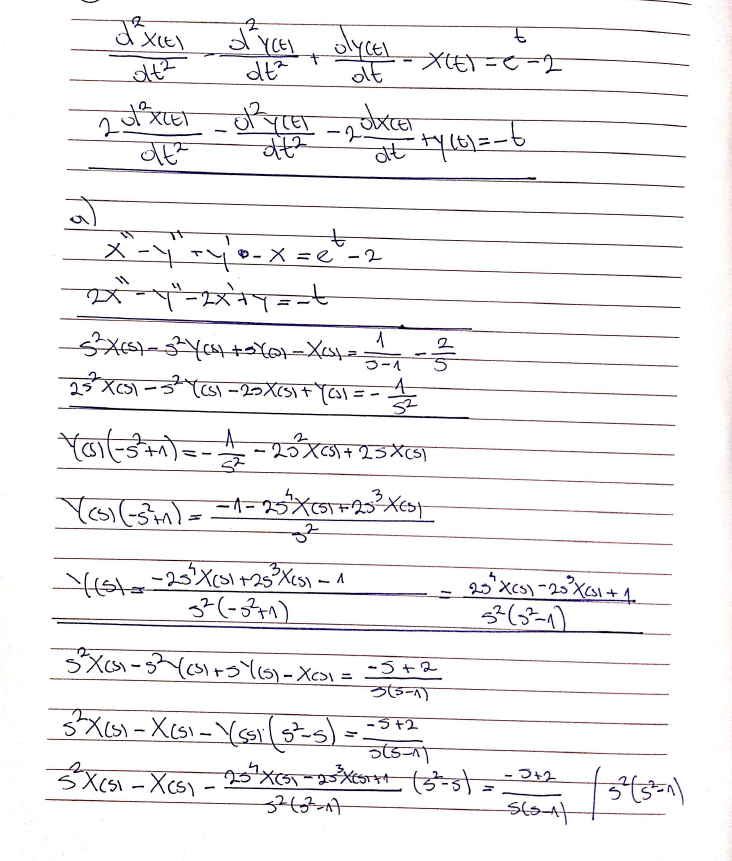 d²x(t)/dt² - d²y(t)/dt² + dy(t)/dt - x(t) = e^t - 2
2 d²x(t)/dt² - d²y(t)/dt² - 2 dx(t)/dt + y(t) = -t
a)
x'' - y'' + y' - x = e^t - 2
2x'' - y'' - 2x' + y = -t
s²X(s) - s²Y(s) + sY(s) - X(s) = 1/(s-1) - 2/s
2s²X(s) - s²Y(s) - 2sX(s) + Y(s) = - 1/s²
Y(s)(-s²+1) = - 1/s² - 2s²X(s) + 2sX(s)
Y(s)(-s²+1) = (-1 - 2s⁴X(s) + 2s³X(s))/s²
Y(s) = (-2s⁴X(s) + 2s³X(s) - 1)/(s²(-s²+1)) = (2s⁴X(s) - 2s³X(s) + 1)/(s²(s²-1))
s²X(s) - s²Y(s) + sY(s) - X(s) = (-s+2)/(s(s-1))
s²X(s) - X(s) - Y(s)·(s²-s) = (-s+2)/(s(s-1))
s²X(s) - X(s) - (2s⁴X(s) - 2s³X(s)+1)/(s²(s²-1)) (s²-s) = (-s+2)/(s(s-1)) / s²(s²-1)